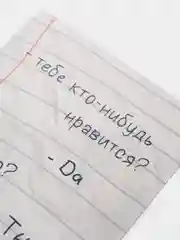 тебе кто-нибудь
нравится?
- Da
о?
Ти